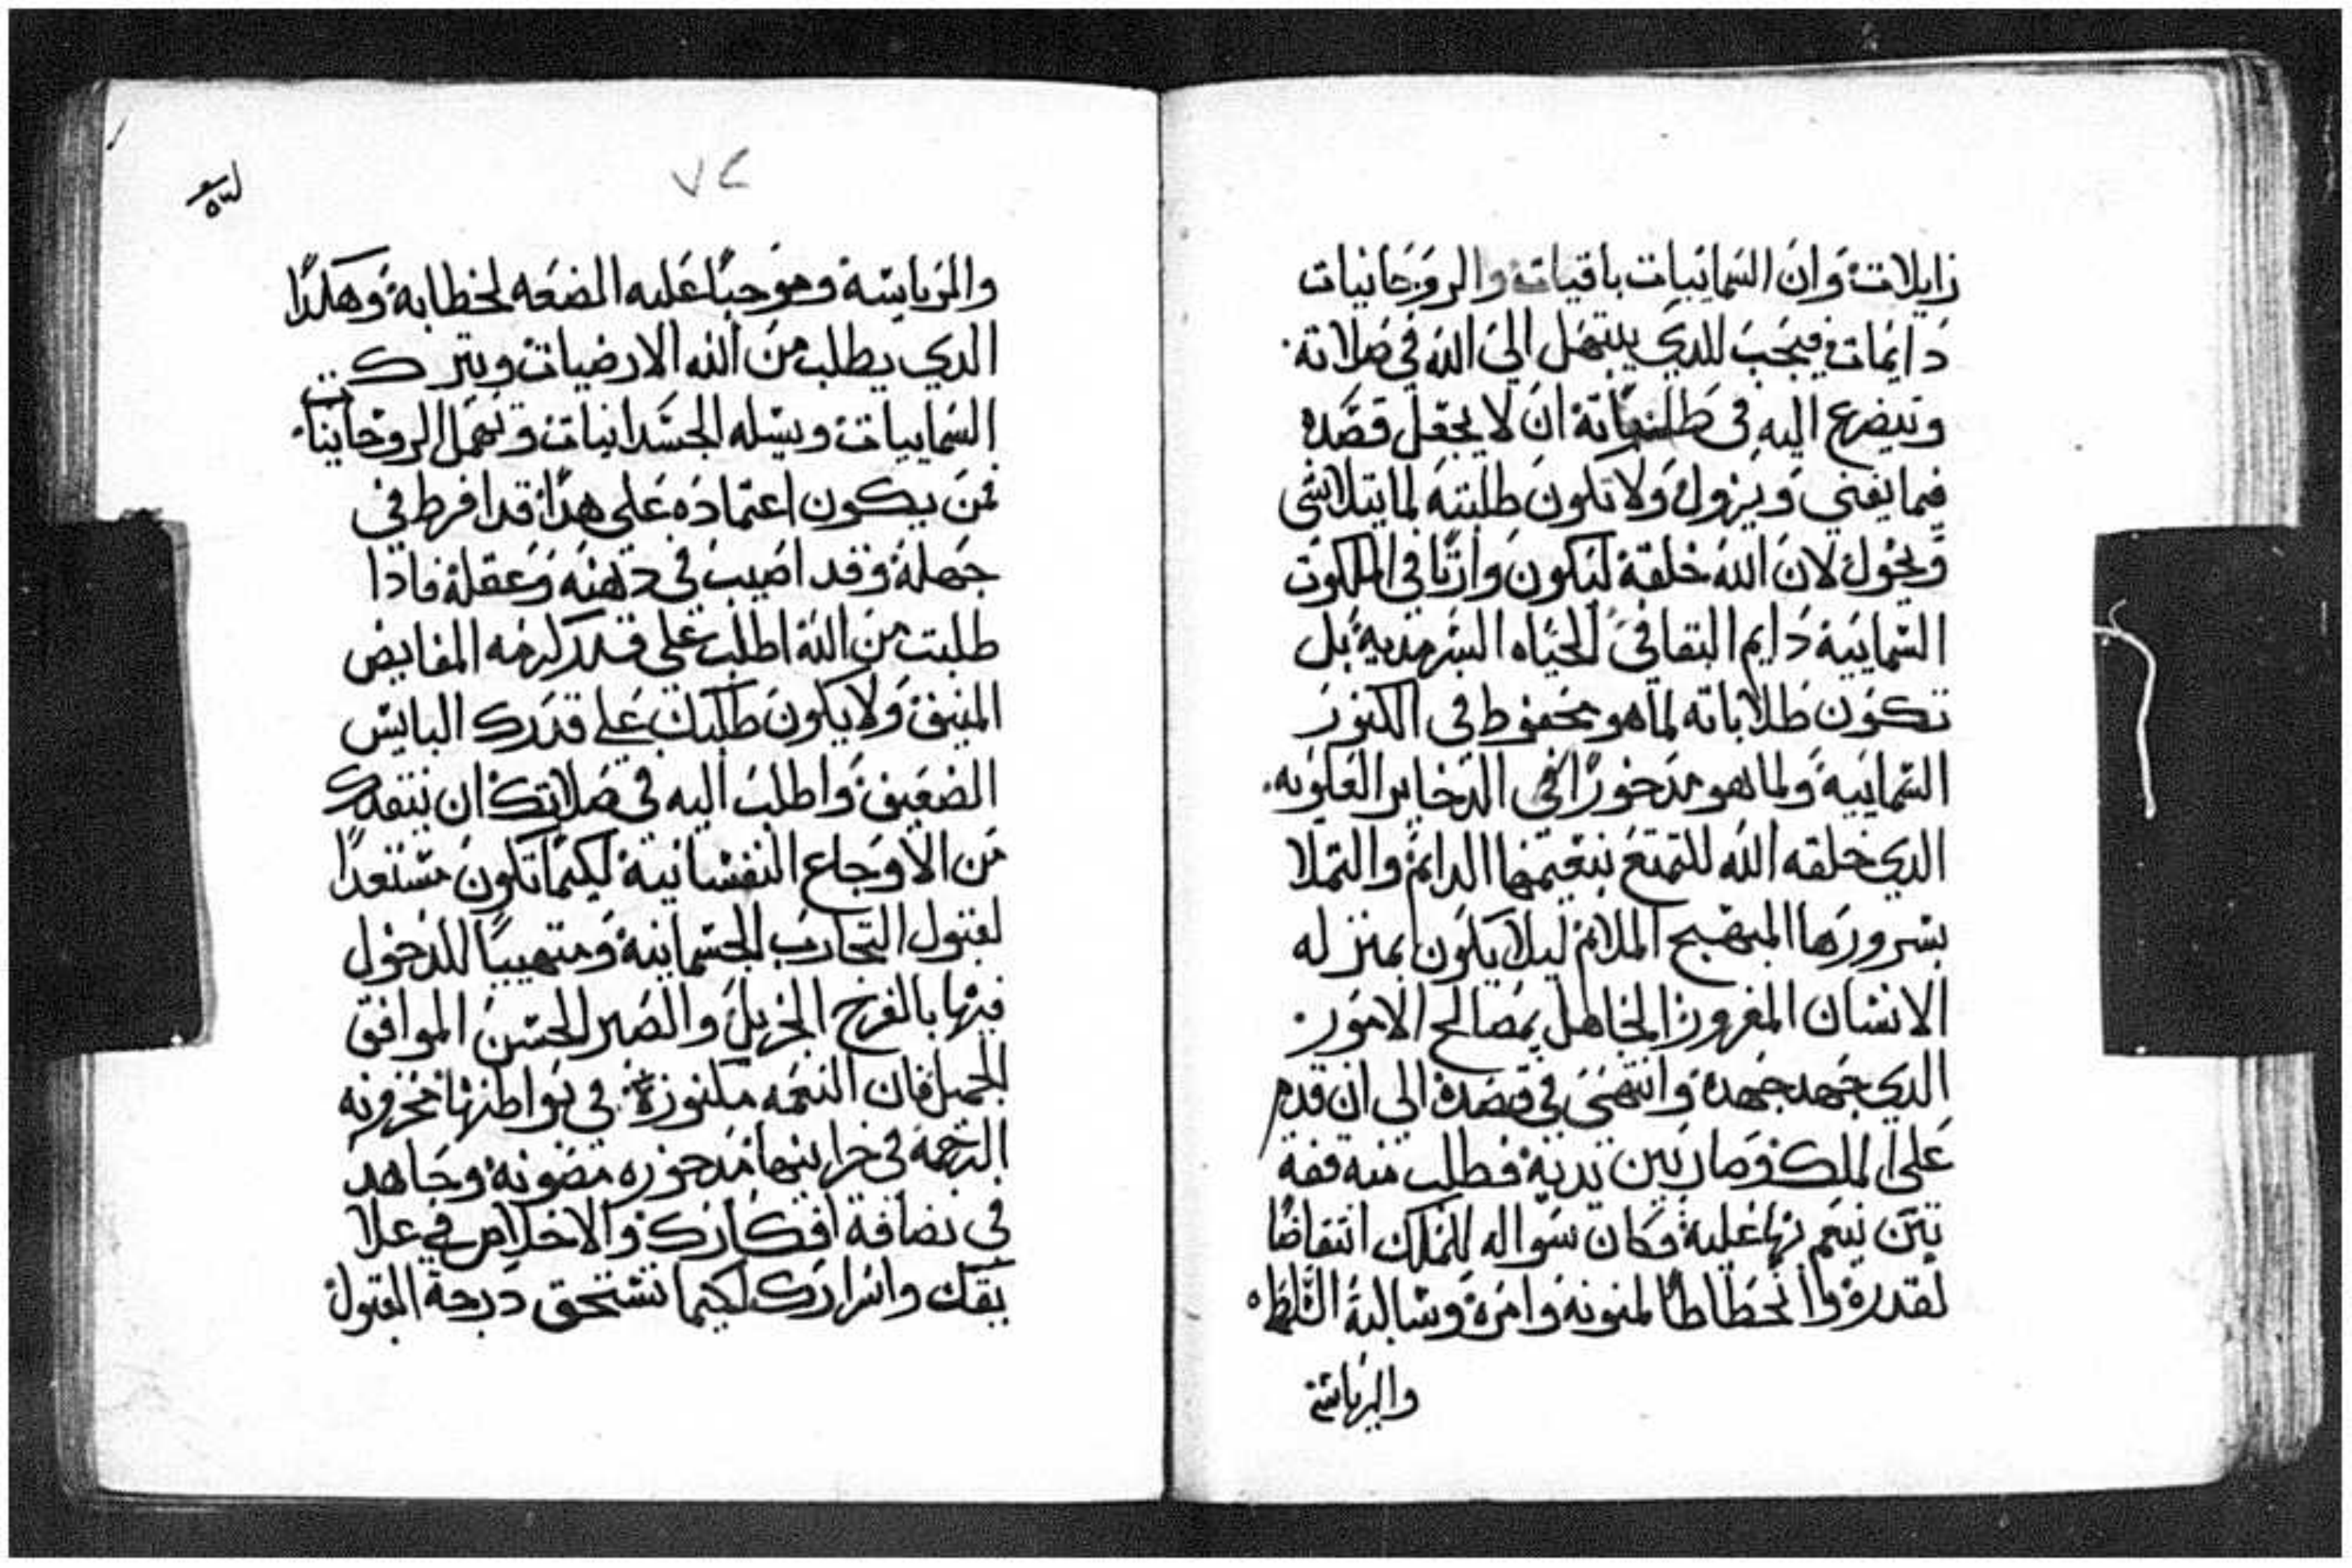 زايلات وان السماييات باقيات والروحانيات
دايمات فيجب للدي يبتهل الي الله في صلاته
وتيضرع اليه في طلباته ان لا يجعل قصده
فيما يفني ويزول ولا تكون طلبته لما يتلاشى
ويحول لان الله خلقه ليكون وارثا في الملكوت
السماييه دايم البقا في الحياه السرمديه بل
تكون طلاباته لما هو محفوظ في الكنوز
السماييه ولما هو مدخورا في الدخاير العلويه
الدي خلقه الله للتمتع بنعيمها الدايم والتملا
بسرورها المبهج الملايم ليلا يكون بمنزله
الانسان المغرور الجاهل بمصالح الامور
الدي جهد جهده وانتهى في قصده الى ان قدم
على الملك وصار بين يديه فطلب منه قفة
تبن ينعم بها عليه فكان سواله للملك انتقاصا
لقدره وانحطاطا لمنونه وامره وشالبة السلطه
والرياسة
٧٤
والرياسة وموجبا عليه الضعه لخطابه وهكدا
الدي يطلب من الله الارضيات ويترك
السماييات ويسله الجسدانيات ويهمل الروحانيات
فمن يكون اعتماده على هدا قد افرط في
جهله وقد اصيب في دهنه وعقله فادا
طلبت من الله اطلب على قدر كرمه الفايض
المنيف ولا يكون طلبك على قدرك البايس
الضعيف واطلب اليه في صلاتك ان ينقدك
من الاوجاع النفسانية لكيما تكون مستعدا
لقبول التجارب الجسمانية ومتهييا للدخول
فيها بالفرح الجزيل والصبر الحسن الموافق
الجميل فان النعمه مكنوزة في بواطنها مخزونه
الرحمة في خزاينها مدخوره مصونه وجاهد
في نضافة افكارك والاخلاص في علا
يقك واسرارك لكيما تستحق درجة القبول